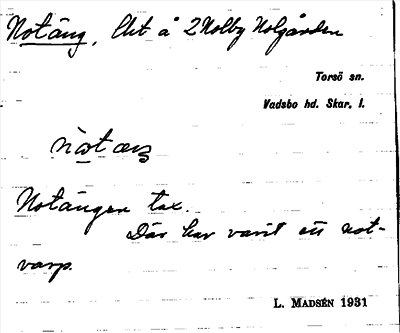 Notäng, Äbt å 2 Nolby Nolgården
Torsö sn.
Vadsbo hd. Skar. l.
Notängen tax.
Där har varit ett not-
varp.
L. MADSÉN 1931